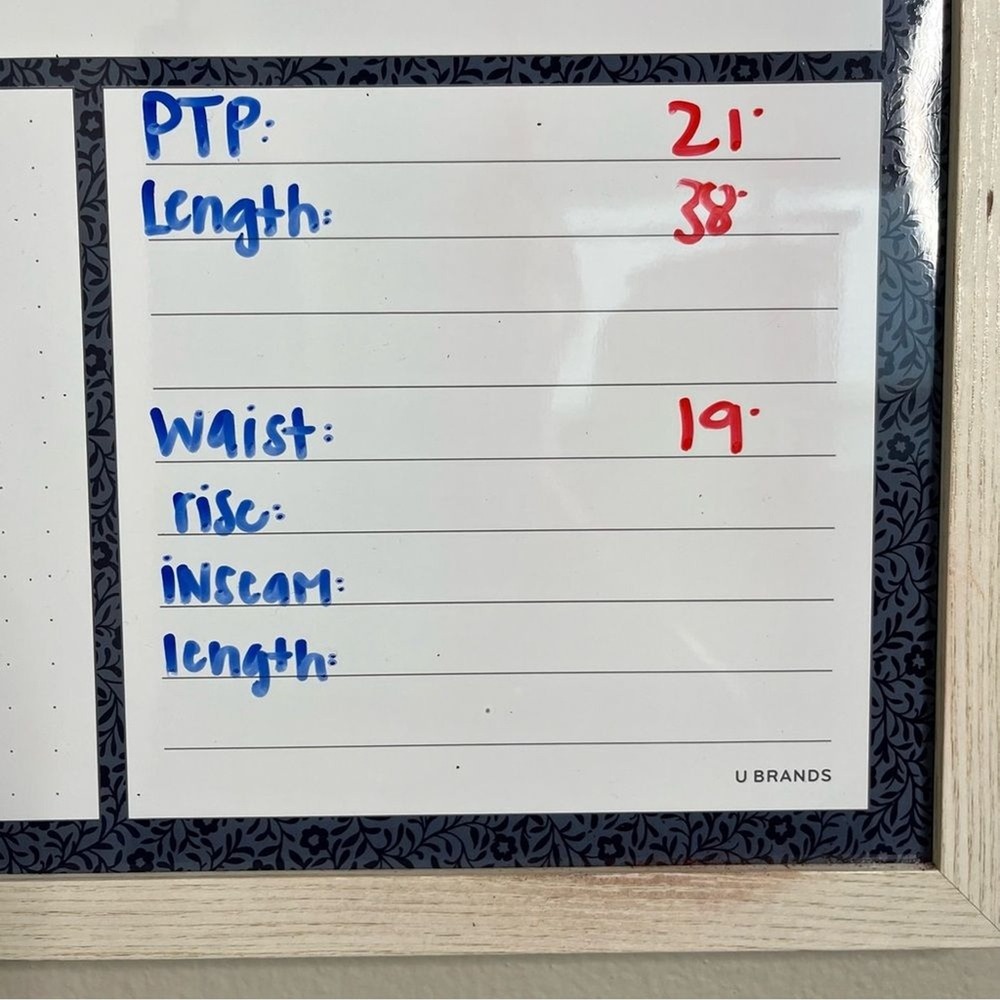 PTP: 21"
Length: 38"
Waist: 19"
rise:
inseam:
length:
U BRANDS